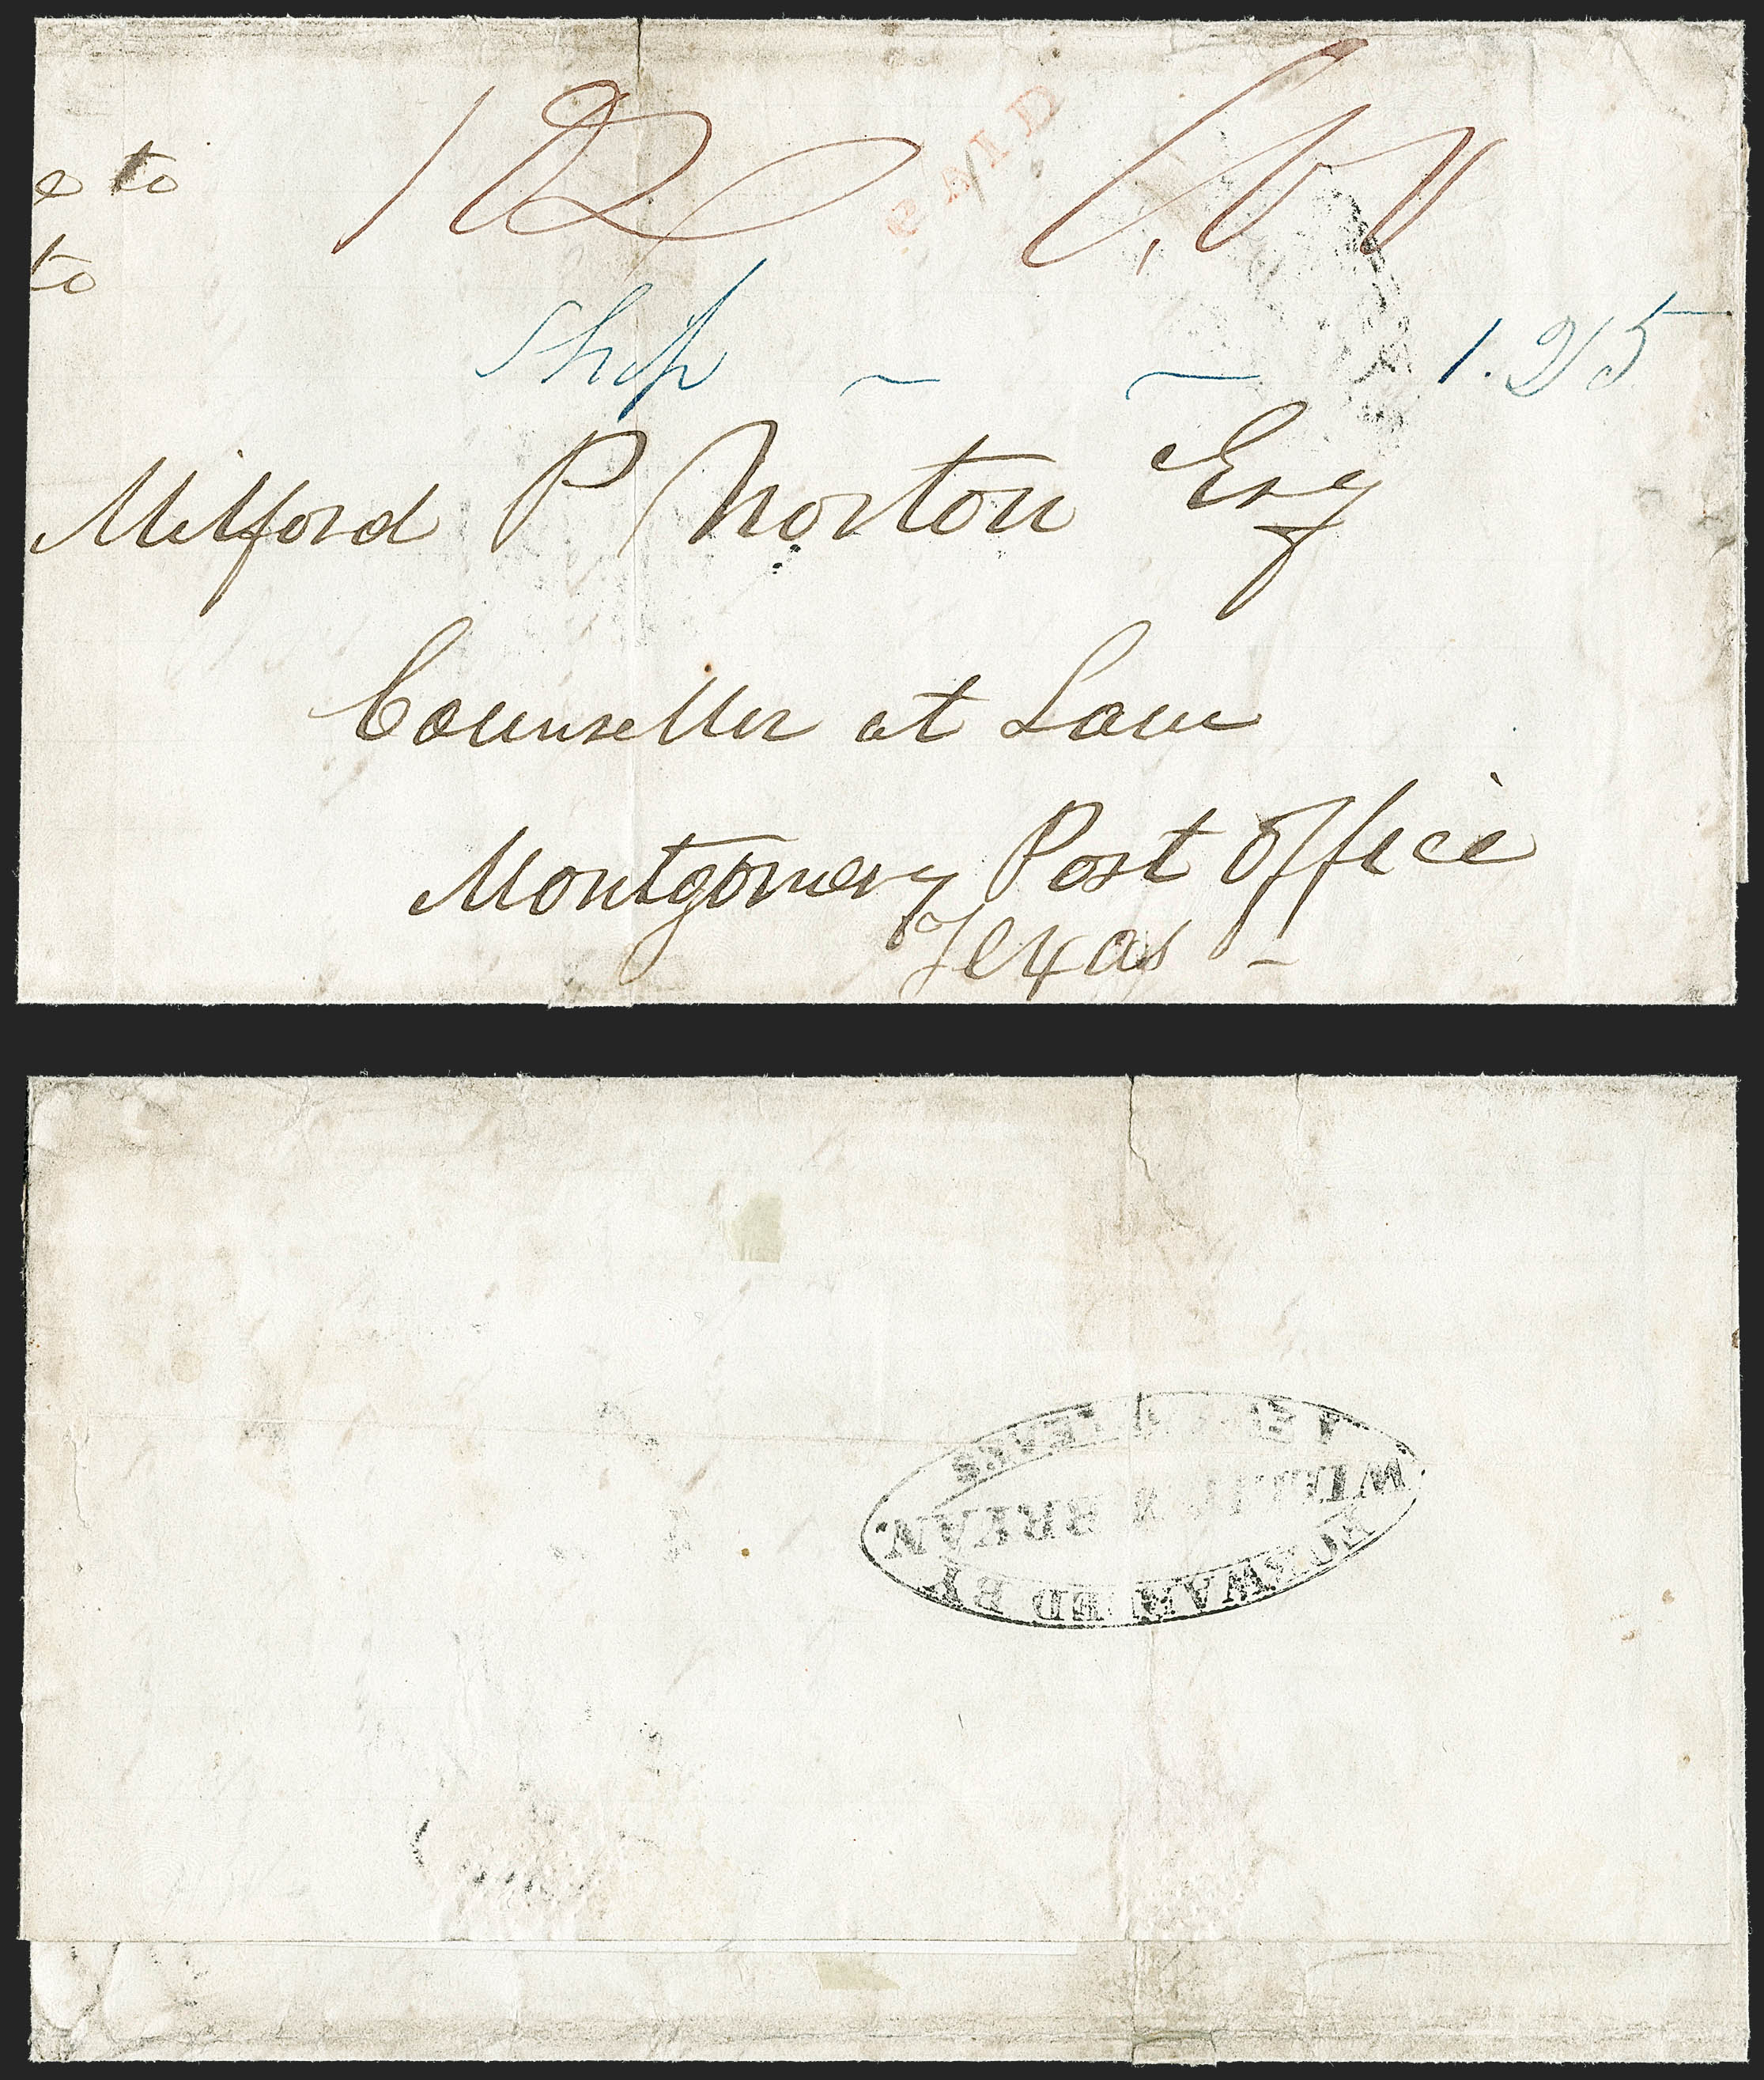 e to
to
PAID
Ship 1.25
Milford P Norton Esq
Counseller at Law
Montgomery Post Office
Texas
FORWARDED BY
BRYAN.